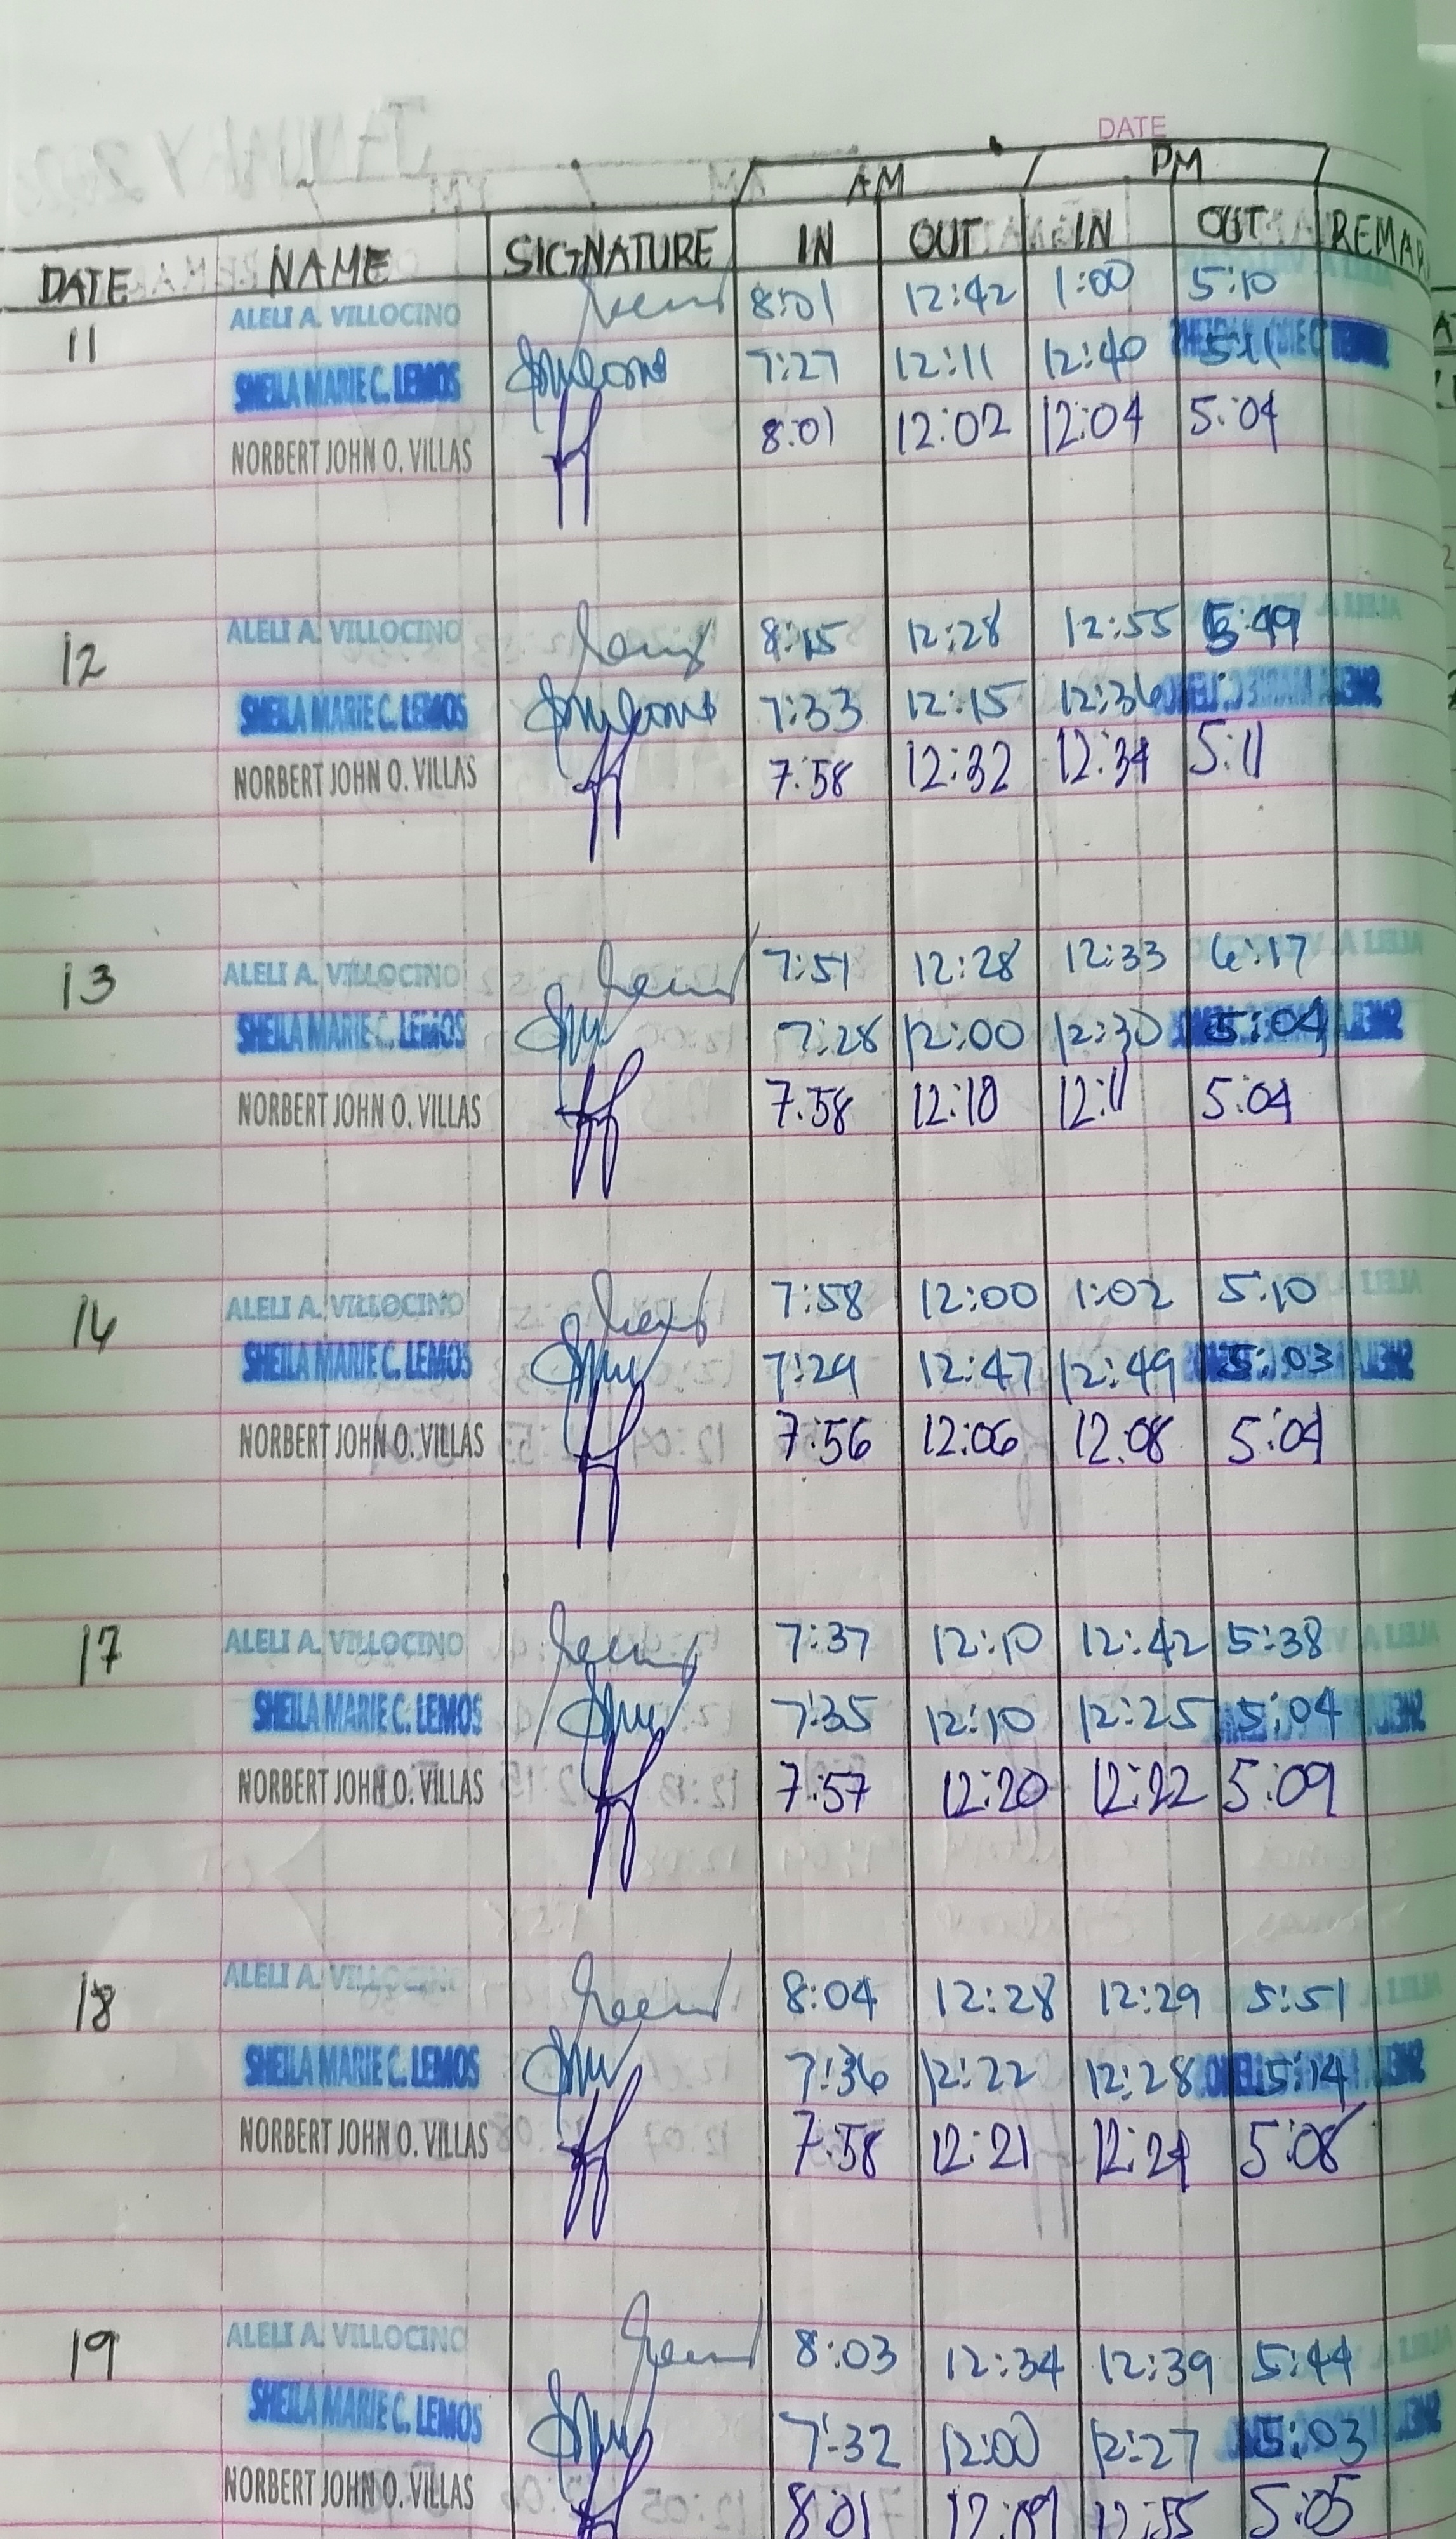 DATE
AM PM
DATE NAME SIGNATURE IN OUT IN OUT REMAR
11 ALELI A. VILLOCINO 8:01 12:42 1:00 5:10
SHEILA MARIE C. LEMOS 7:27 12:11 12:40
NORBERT JOHN O. VILLAS 8:01 12:02 12:04 5:04
12 ALELI A. VILLOCINO 8:15 12:28 12:55 5:49
SHEILA MARIE C. LEMOS 7:33 12:15 12:36
NORBERT JOHN O. VILLAS 7:58 12:32 12:34 5:11
13 ALELI A. VILLOCINO 7:51 12:28 12:33 6:17
SHEILA MARIE C. LEMOS 7:28 12:00 12:30 5:04
NORBERT JOHN O. VILLAS 7:58 12:10 12:11 5:04
16 ALELI A. VILLOCINO 7:58 12:00 1:02 5:10
SHEILA MARIE C. LEMOS 7:29 12:47 12:49 5:03
NORBERT JOHN O. VILLAS 7:56 12:06 12:08 5:04
17 ALELI A. VILLOCINO 7:37 12:10 12:42 5:38
SHEILA MARIE C. LEMOS 7:35 12:10 12:25 5:04
NORBERT JOHN O. VILLAS 7:57 12:20 12:22 5:09
18 ALELI A. VILLOCINO 8:04 12:28 12:29 5:51
SHEILA MARIE C. LEMOS 7:36 12:22 12:28 5:14
NORBERT JOHN O. VILLAS 7:58 12:21 12:24 5:08
19 ALELI A. VILLOCINO 8:03 12:34 12:39 5:44
SHEILA MARIE C. LEMOS 7:32 12:00 12:27 5:03
NORBERT JOHN O. VILLAS 8:01 12:55 5:05